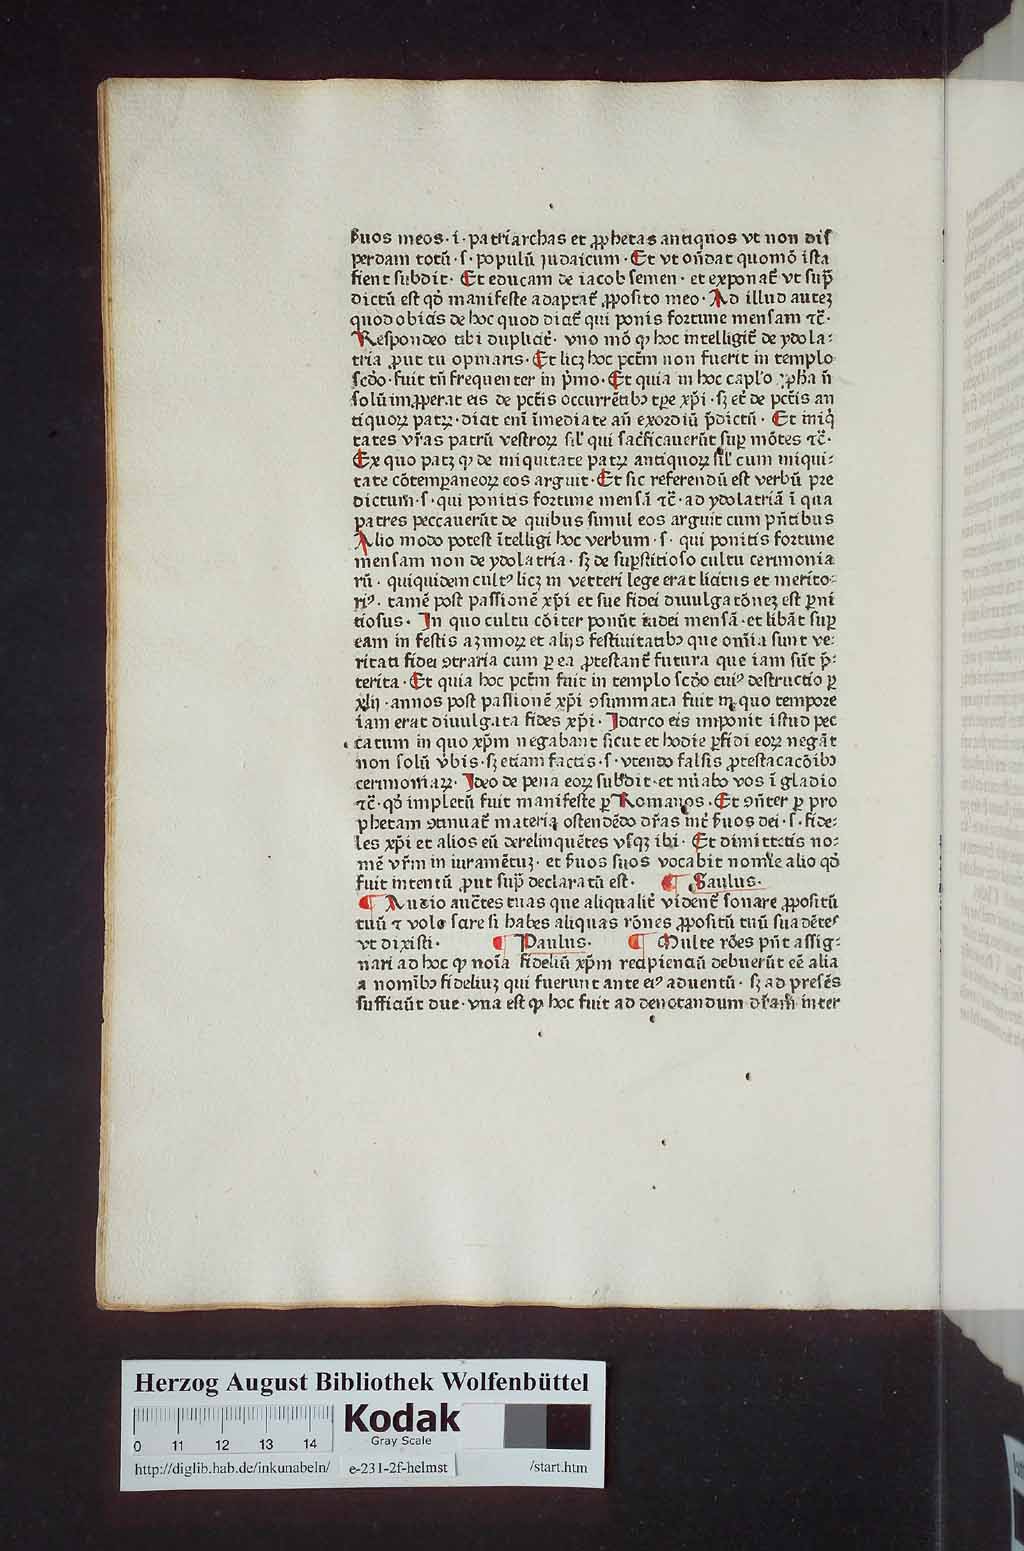 ẜuos meos · i · patriarchas et ꝓphetas antiquos vt non diſ
perdam totũ · ſ · populũ iudaicum · Et vt oñdat quomõ iſta
fient ſubdit · Et educam de iacob ſemen · et exponat̃ vt ſup̃
dictũ eſt qđ manifeſte adaptat̃ ꝓpoſito meo · Ad illud auteꝫ
quod obicis de hoc quod dicit̃ qui ponis fortune menſam ⁊c̃ ·
Reſpondeo tibi duplicit̃ · vno mõ ꝙ hoc intelligit̃ de ydola⸗
tria ꝓut tu opinaris · Et licꝫ hoc pctm̃ non fuerit in templo
ſcđo · fuit tñ frequenter in p̃mo · Et quia in hoc cap̃lo ꝓpha ñ
ſolũ imꝓperat eis de pctĩs occurrẽtibꝰ tꝑe xp̃i · ſꝫ et̃ de pctĩs an
tiquoꝝ patꝝ · dicit eni ĩmediate añ exordiũ p̃dictũ · Et iniq̃
tates vr̃as patrũ veſtroꝝ ſil̃ qui ſac̃ficauerũt ſuꝑ mõtes ⁊c̃ ·
Ex quo patꝫ ꝙ de iniquitate patꝝ antiquoꝝ ſil̃ cum iniqui⸗
tate cõtemꝑaneoꝝ eos arguit · Et ſic referendũ eſt verbũ pre
dictum · ſ · qui ponitis fortune menſã ⁊c̃ · ad ydolatriã ĩ qua
patres peccauerũt de quibus ſimul eos arguit cum pñtibus
Alio modo poteſt ĩtelligi hoc verbum · ſ · qui ponitis fortune
menſam non de ydolatria · ſꝫ de ſuꝑſtitioſo cultu cerimonia
rũ · quiquidem cultꝰ licꝫ in vetteri lege erat licitus et merito⸗
riꝰ · tamẽ poſt paſſionẽ xp̃i et ſue fidei diuulgatõneꝫ eſt ꝑni
tioſus · In quo cultu cõiter ponũt iudei menſã · et libãt ſuꝑ
eam in feſtis aꝫimoꝝ et alijs feſtiuitatibꝰ que om̃ia ſunt ve⸗
ritati fidei ꝯtraria cum ꝑ ea ꝓteſtant̃ futura que iam ſũt p̃⸗
terita · Et quia hoc pctm̃ fuit in templo ſcđo cuiꝰ deſtructio ꝑ
xlij · annos poſt paſſionẽ xp̃i ꝯſummata fuit in quo tempore
iam erat diuulgata fides xp̃i · Idarco eis imponit iſtud pec
catum in quo xp̃m negabant ſicut et hodie ꝑfidi eoꝝ negãt
non ſolũ v̾bis · ſꝫ etiam factis · ſ · vtendo falſis ꝓteſtacacõibꝰ
cerimoniaꝝ · Ideo de pena eoꝝ ſubdit · et nũabo vos ĩ gladio
⁊c̃ · qđ impletũ fuit manifeſte ꝑ Romanos · Et ꝯñter ꝑ pro
phetam ꝯtinuat̃ materia oſtendẽdo dr̃as int̃ ẜuos dei · ſ · fide⸗
les xp̃i et alios eũ derelinquẽtes vſqꝫ ibi · Et dimittetis no⸗
mẽ vr̃m in iuramẽtuꝫ · et ẜuos ſuos vocabit nomine alio qđ
fuit intentũ ꝓut ſup̃ declaratũ eſt · ¶ Saulus ·
¶ Audio auc̃tes tuas que aliqualit̃ vident̃ ſonare ꝓpoſitũ
tuũ ⁊ volo ſcire ſi habes aliquas rõnes ꝓpoſitũ tuũ ſuadẽtes
vt dixiſti · ¶ Paulus · ¶ Multe rões pñt aſſig⸗
nari ad hoc ꝙ noĩa fideliũ xp̃m recipienciũ debuerũt eẽ alia
a nomĩbꝰ fideliuꝫ qui fuerunt ante eiꝰ aduentũ · ſꝫ ad preſẽs
ſufficiũt due · vna eſt ꝙ hoc fuit ad denotandum dr̃am inter
Herzog August Bibliothek Wolfenbüttel
Kodak
Gray Scale
0 11 12 13 14
http://diglib.hab.de/inkunabeln/ e-231-2f-helmst /start.htm